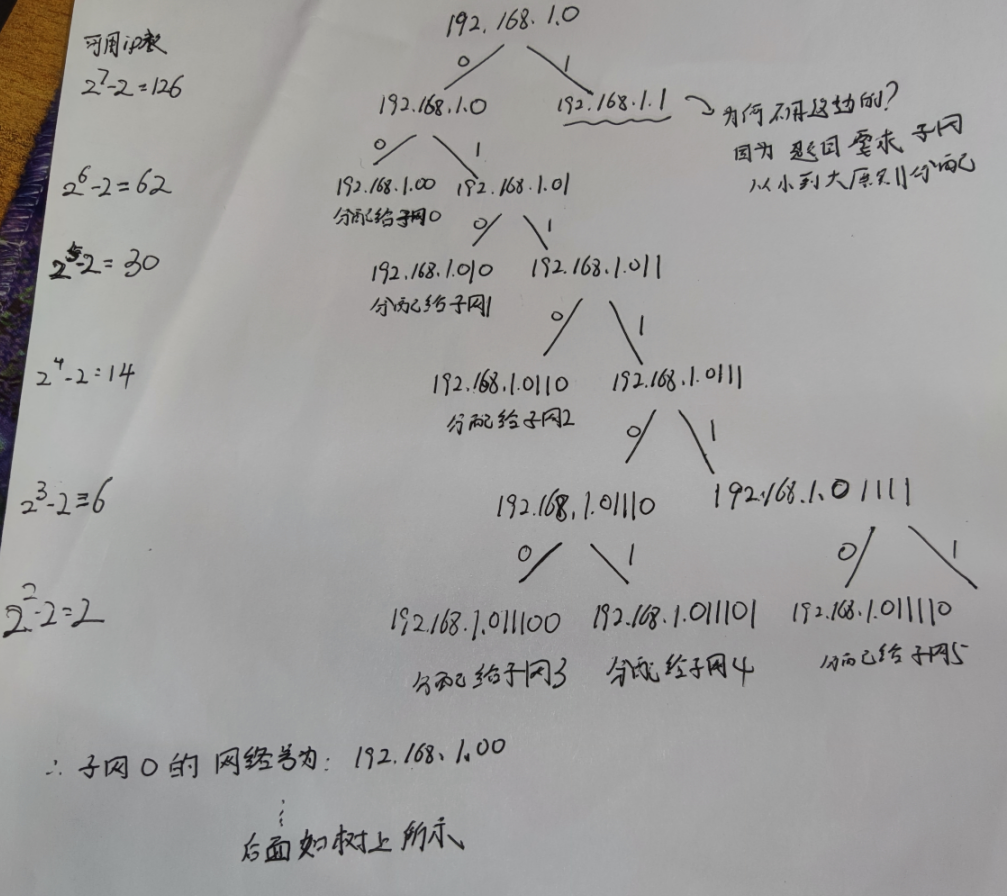 192.168.1.0
可用ip数
0 1
2^7-2=126
192.168.1.0 192.168.1.1
为何不用这边的?
因为 题目 要求 子网
从小到大原则分配
0 1
2^6-2=62
192.168.1.00 192.168.1.01
分配给子网0
0 1
2^5-2=30
192.168.1.010 192.168.1.011
分配给子网1
0 1
2^4-2=14
192.168.1.0110 192.168.1.0111
分配给子网2
0 1
2^3-2=6
192.168.1.01110 192.168.1.01111
0 1 0 1
2^2-2=2
192.168.1.011100 192.168.1.011101 192.168.1.011110
分配给子网3 分配给子网4 分配给子网5
∴子网0的网络号为: 192.168.1.00
后面如树上所示